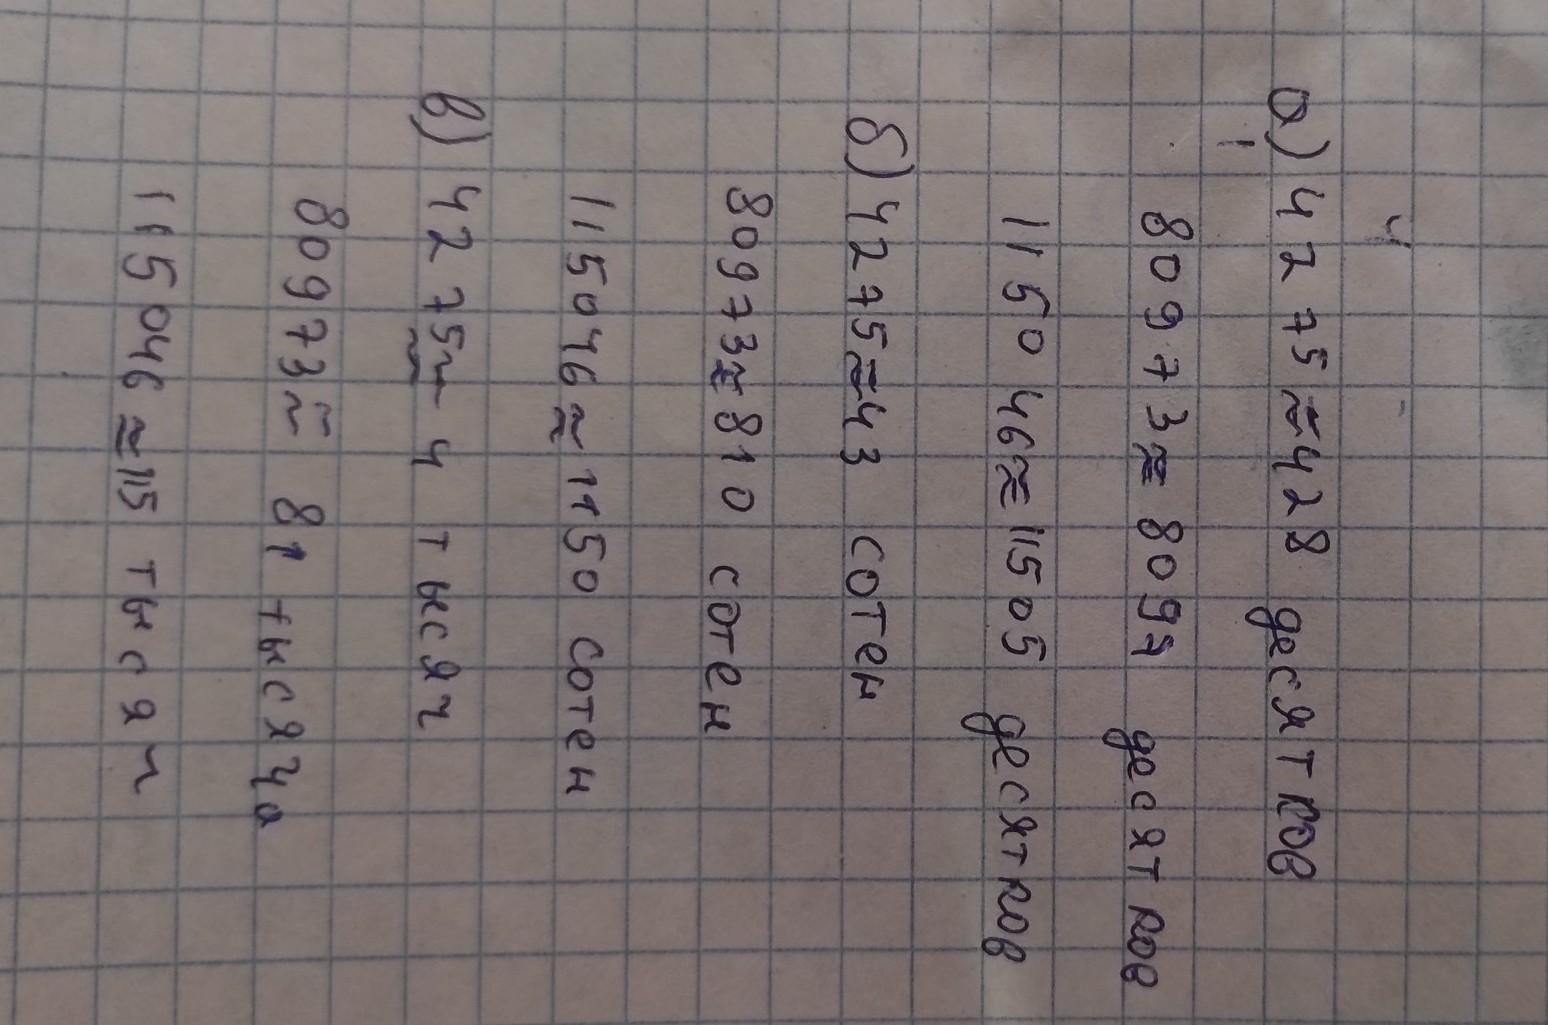 а) 4275≈428 десятков
80973≈8097 десятков
115046≈11505 десятков
б) 4275≈43 сотен
80973≈810 сотен
115046≈1150 сотен
в) 4275≈ 4 тысяч
80973≈ 81 тысяча
115046≈115 тысяч